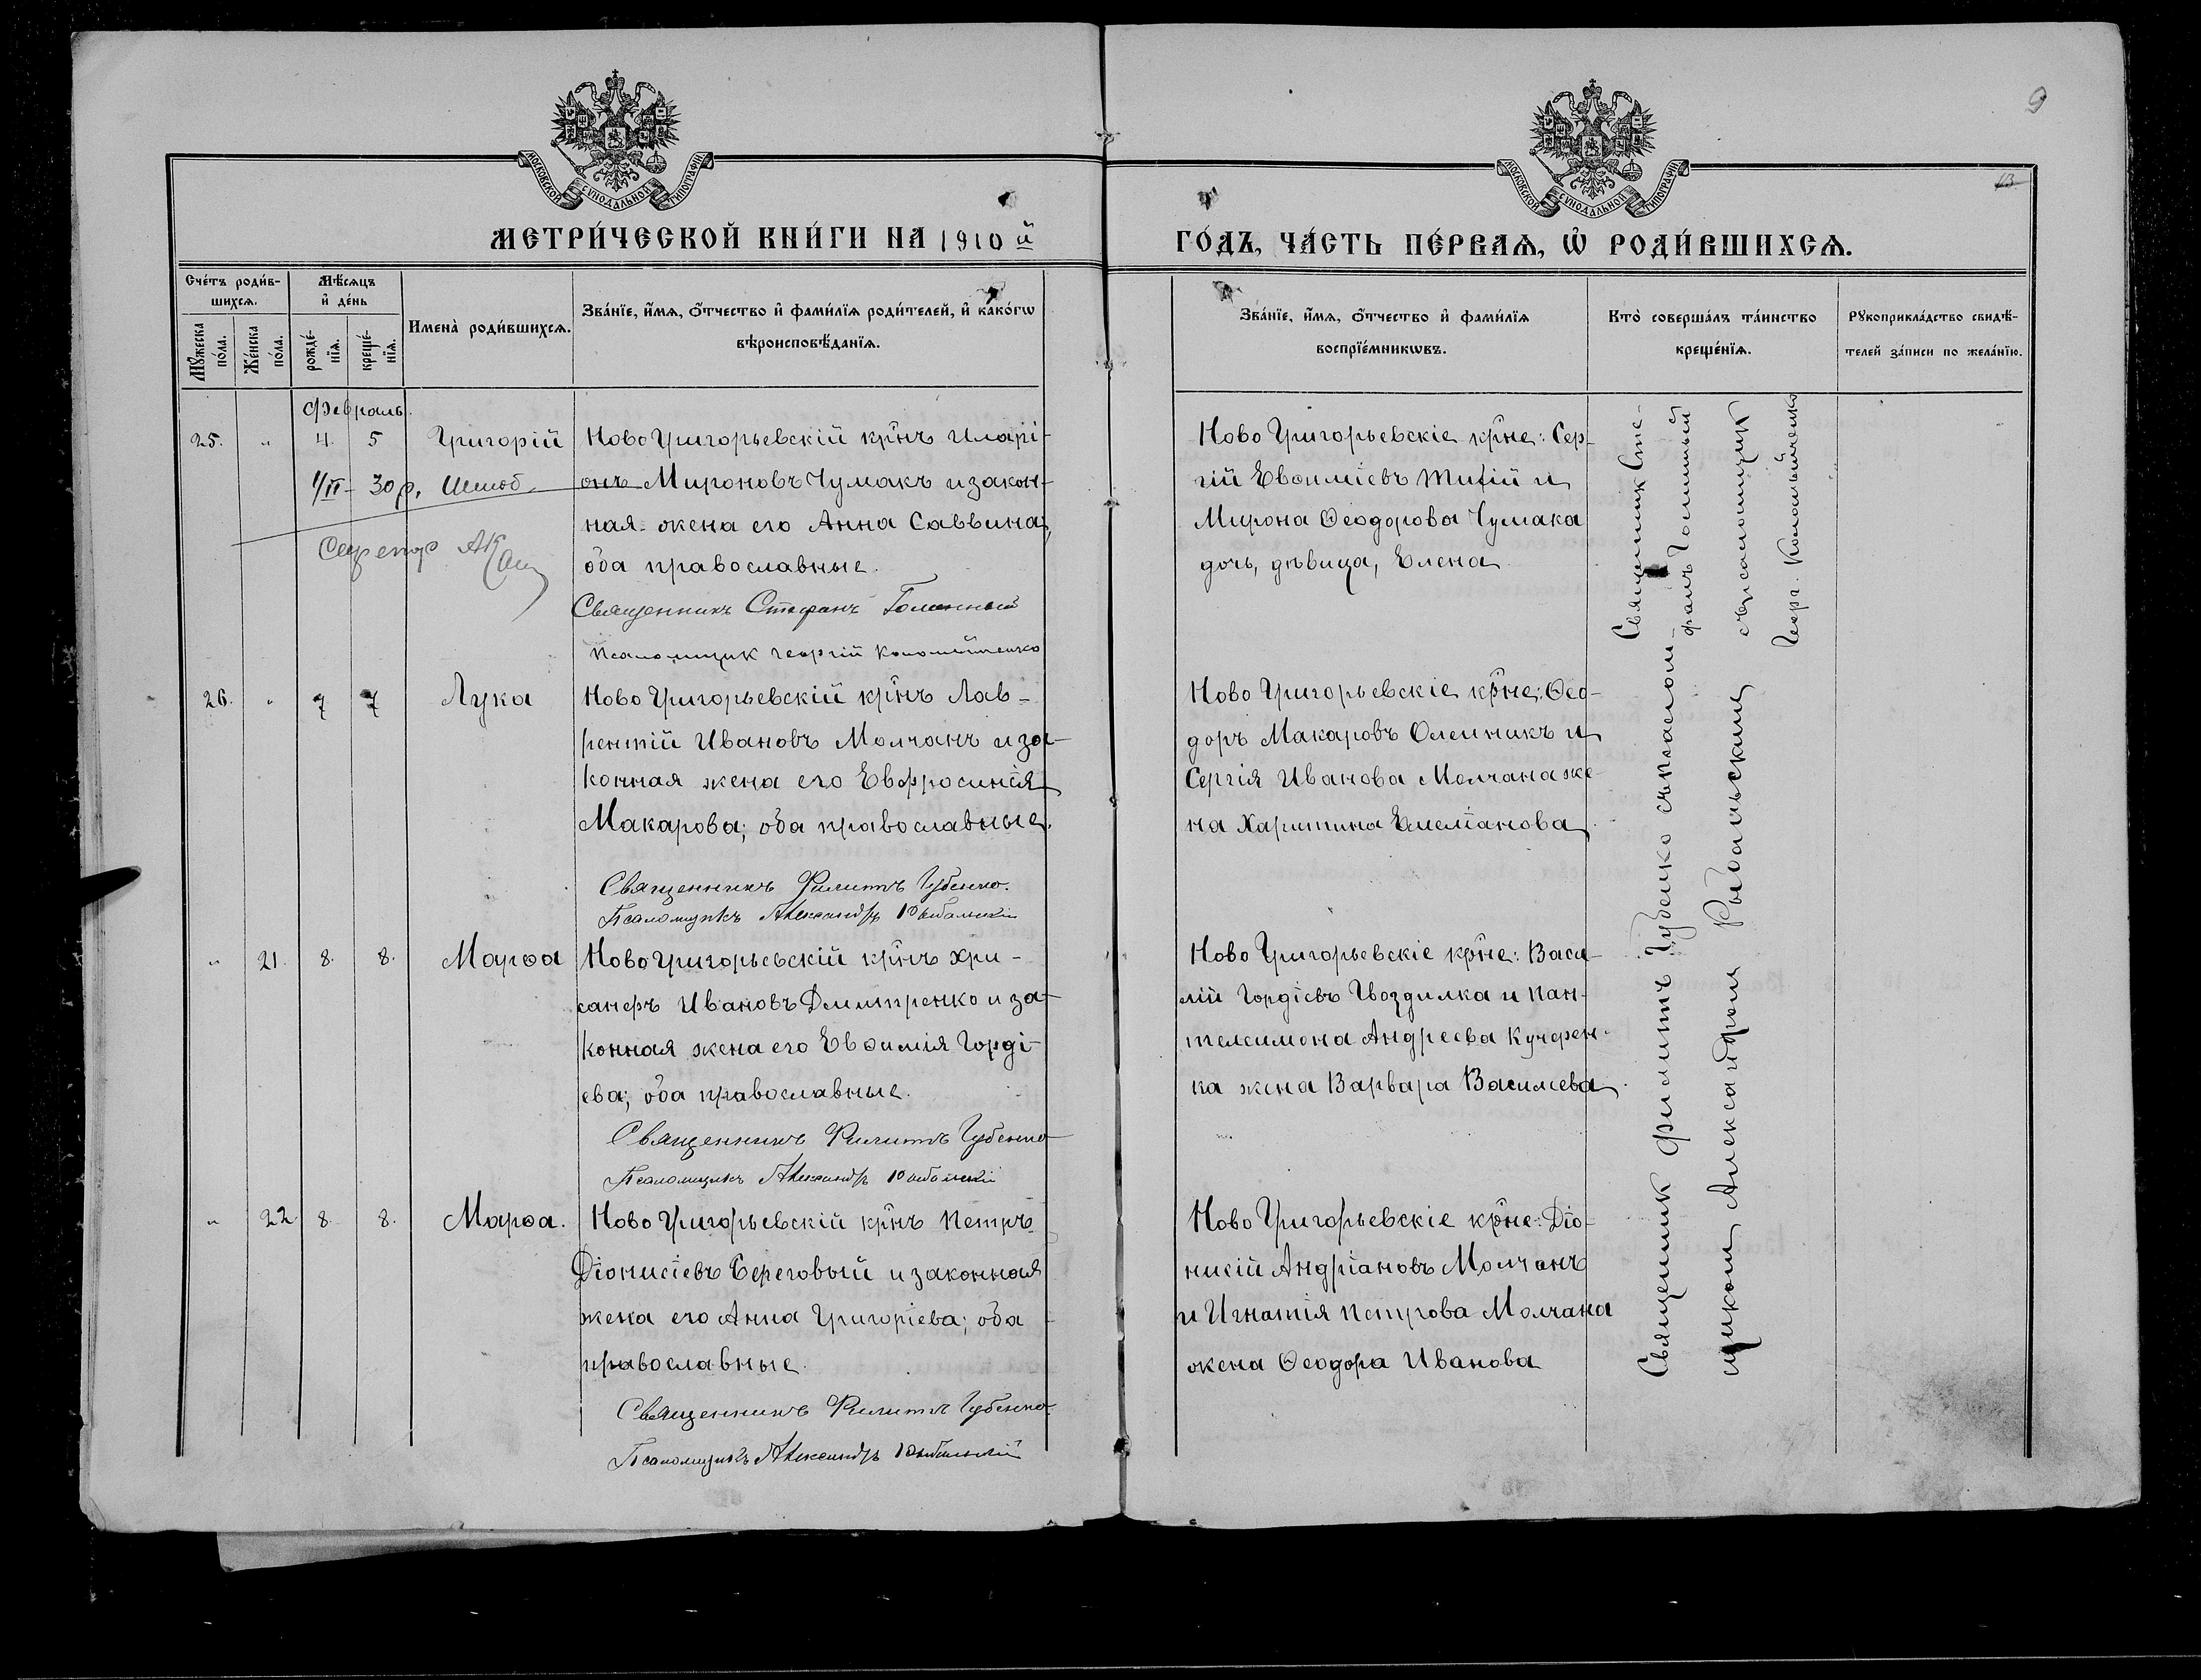 9
13
МОСКОВСКОЙ СѴНОДАЛЬНОЙ ТИПОГРАФІИ
МОСКОВСКОЙ СѴНОДАЛЬНОЙ ТИПОГРАФІИ
МЕТРИ́ЧЕСКОЙ КНИ́ГИ НА 1910й
ГО́ДЪ, ЧА́СТЬ ПЕ́РВАѦ, Ѡ҆ РОДИ́ВШИХСѦ.
Сче́тъ роди́в-
шихсѧ.
Мꙋ́жеска
по́ла.
Же́нска
по́ла.
Мѣ́сѧцъ
и҆ де́нь
рожде́-
нїѧ.
креще́-
нїѧ.
Имена̀ роди́вшихсѧ.
Зва́нїе, и҆́мѧ, о҆́тчество и҆ фами́лїѧ роди́телей, и҆ како́гѡ
вѣроисповѣ́данїѧ.
Зва́нїе, и҆́мѧ, о҆́тчество и҆ фами́лїѧ
воспрїе́мникѡвъ.
Кто̀ соверша́лъ та́инство
креще́нїѧ.
Рꙋкоприкла́дство свидѣ́-
телей за́писи по жела́нїю.
Февраль.
25. " 4. 5 Григорій
Ново Григорьевскій кр̃нъ Иларі-
онъ Мироновъ Чумакъ и закон-
ная жена его Анна Саввина,
оба православные.
Священникъ Стефанъ Голенный
Псаломщик Георгій Коломійченко
1/II - 30 р.
Ново Григорьевскіе кр̃не: Сер-
гій Евѳиміевъ Тихій и
Мирона Ѳеодорова Чумака
дочь, дѣвица, Елена
Священник Сте-
фанъ Голенный
съ псаломщик
Георг. Коломійченко
26. " 7 7 Лука
Ново Григорьевскій кр̃нъ Лав-
рентій Ивановъ Молчанъ и за-
конная жена его Евфросинія
Макарова; оба православные.
Священникъ Филиппъ Губенко.
Псаломщикъ Александръ Рыбальскій
Ново Григорьевскіе кр̃не: Ѳео-
доръ Макаровъ Олейникъ и
Сергія Иванова Молчана же-
на Харитина Емеліанова
" 21. 8. 8. Марѳа
Ново Григорьевскій кр̃нъ Хри-
санѳъ Ивановъ Дмитренко и за-
конная жена его Евѳимія Горді-
ева; оба православные.
Священникъ Филиппъ Губенко
Псаломщикъ Александръ Рыбальскій
Ново Григорьевскіе кр̃не: Васи-
лій Гордіевъ Гвоздилка и Пан-
телеимона Андреева Кучерен-
ка жена Варвара Василіева.
" 22. 8. 8. Марѳа.
Ново Григорьевскій кр̃нъ Петръ
Діонисіевъ Береговый и законная
жена его Анна Григоріева; оба
православные.
Священникъ Филиппъ Губенко
Псаломщикъ Александръ Рыбальскій
Ново Григорьевскіе кр̃не: Діо-
нисій Андріановъ Молчанъ
и Игнатія Петрова Молчана
жена Ѳеодора Иванова
Священник Филиппъ Губенко съ псалом-
щиком Александром Рыбальским